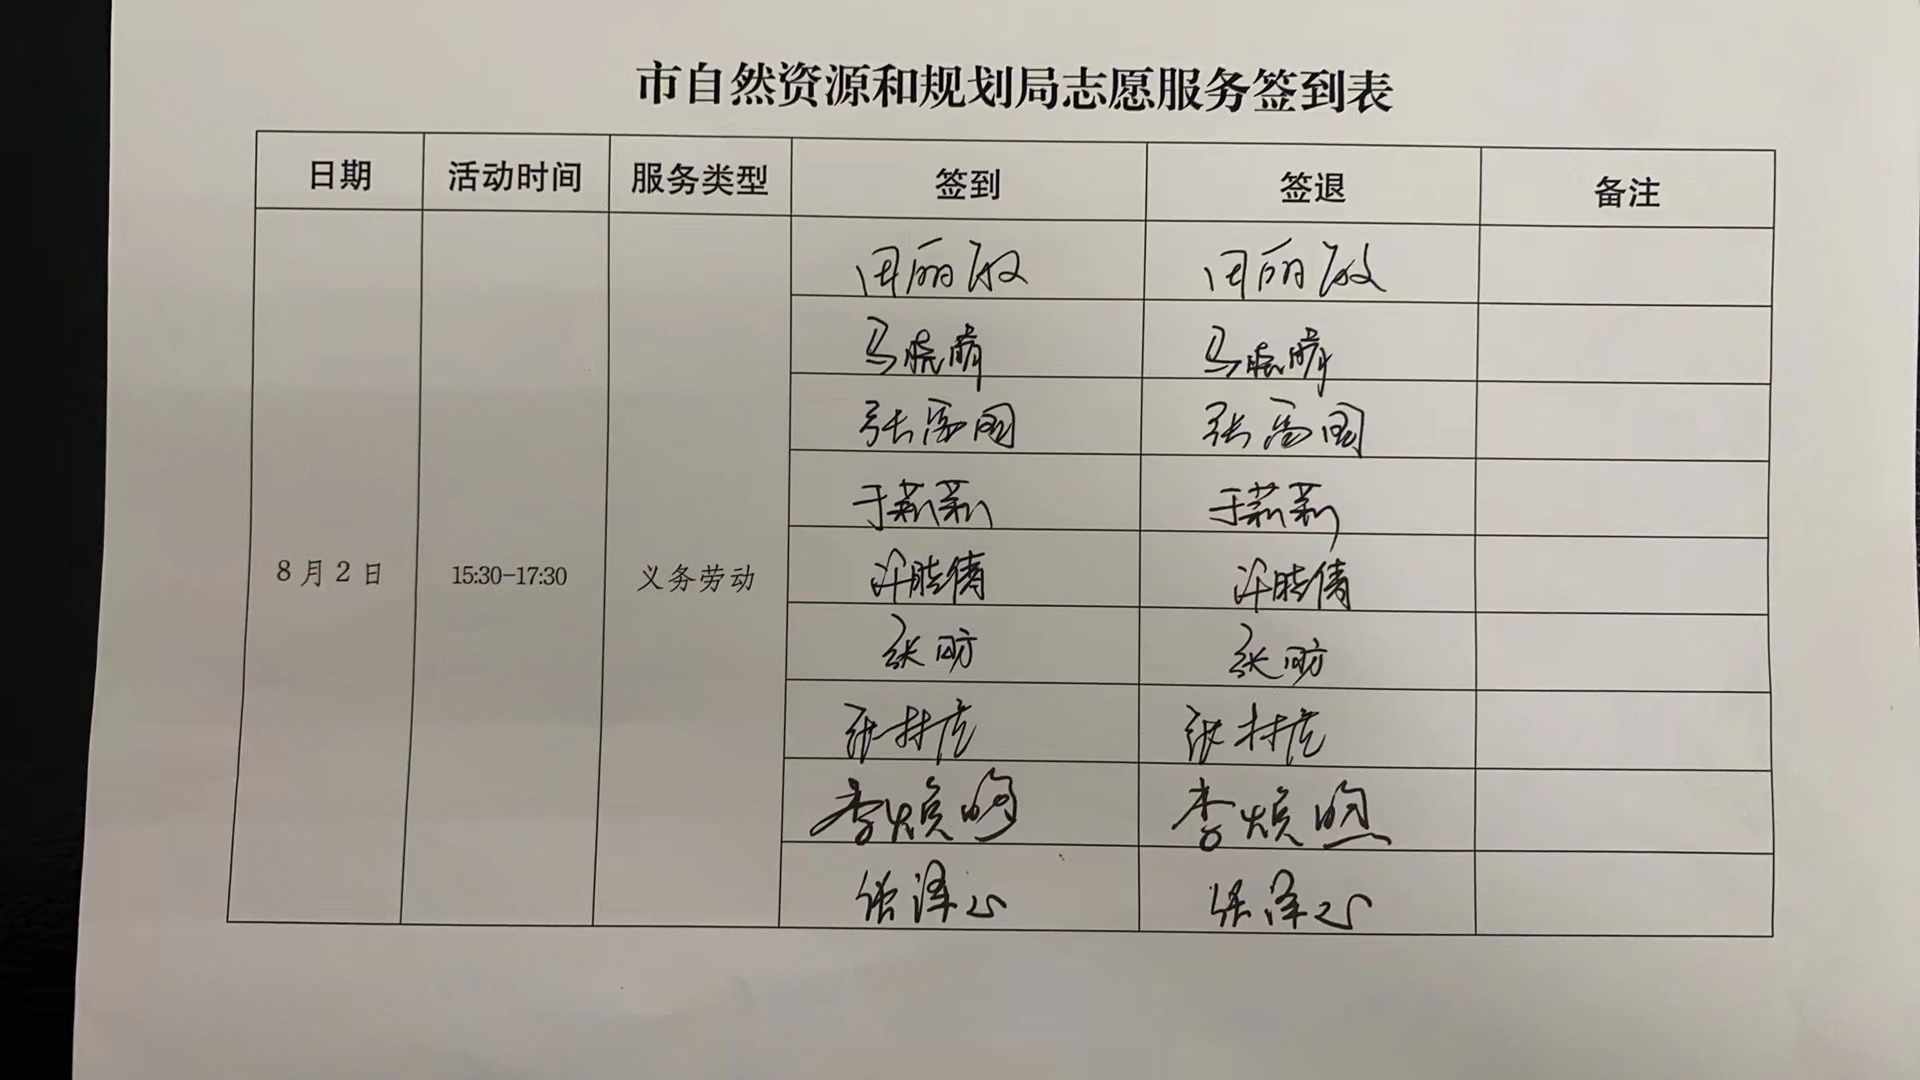 市自然资源和规划局志愿服务签到表
日期 活动时间 服务类型 签到 签退 备注
田丽敏 田丽敏
马晓晴 马晓晴
张国 张国
于莉莉 于莉莉
8月2日 15:30-17:30 义务劳动 许晓倩 许晓倩
张昉 张昉
张村彦 张村彦
李焕 李焕
张泽心 张泽心